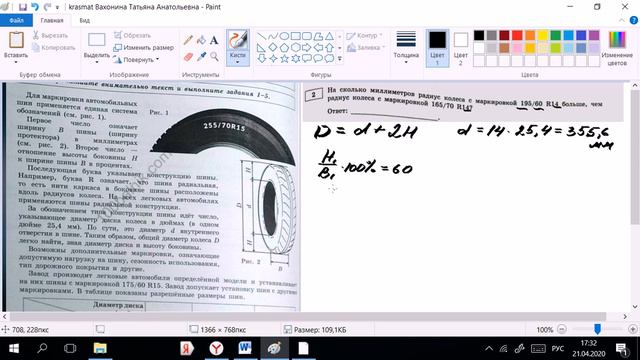 krasmat Вахонина Татьяна Анатольевна - Paint
Файл Главная Вид
Вставить
Вырезать
Копировать
Выделить
Обрезать
Изменить размер
Повернуть
Кисти
Фигуры
Контур
Заливка
Толщина
Цвет 1
Цвет 2
Изменение цветов
Буфер обмена Изображение Инструменты Фигуры Цвета
внимательно текст и выполните задания 1–5.
Для маркировки автомобильных
шин применяется единая система
обозначений (см. рис. 1).
Первое число означает
ширину B шины (ширину
протектора) в миллиметрах
(см. рис. 2). Второе число —
отношение высоты боковины H
к ширине шины B в процентах.
Последующая буква указывает конструкцию шины.
Например, буква R означает, что шина радиальная,
то есть нити каркаса в боковине шины расположены
вдоль радиусов колеса. На всех легковых автомобилях
применяются шины радиальной конструкции.
За обозначением типа конструкции шины идёт число,
указывающее диаметр диска колеса d в дюймах (в одном
дюйме 25,4 мм). По сути, это диаметр d внутреннего
отверстия в шине. Таким образом, общий диаметр колеса D
легко найти, зная диаметр диска и высоту боковины.
Возможны дополнительные маркировки, означающие
допустимую нагрузку на шину, сезонность использования,
тип дорожного покрытия и другие.
Завод производит легковые автомобили определённой модели и устанавливает
на них шины с маркировкой 175/60 R15. Завод допускает установку шин с другими
маркировками. В таблице показаны разрешённые размеры шин.
Диаметр диска
Рис. 1
255/70R15
H
d
D
H
Рис. 2
B
2
На сколько миллиметров радиус колеса с маркировкой 195/60 R14 больше, чем
радиус колеса с маркировкой 165/70 R14?
Ответ:
D = d + 2H
d = 14 · 25,4 = 355,6 мм
H₁/B₁ · 100% = 60
708, 228пкс
1366 × 768пкс
Размер: 109,1КБ
100%
РУС
17:32
21.04.2020